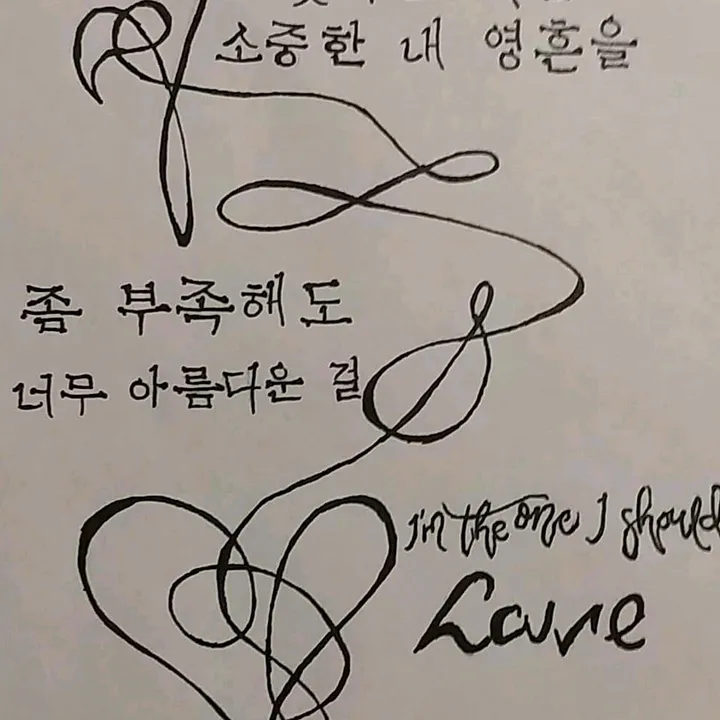 소중한 내 영혼을
좀 부족해도
너무 아름다운 걸
I'm the one I should
Love